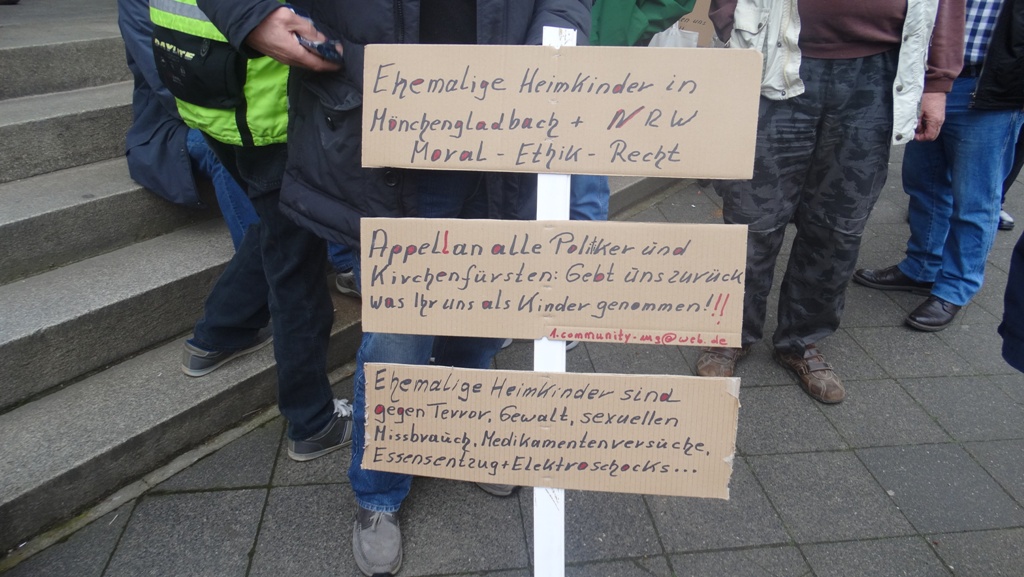 DAYLITE
Ehemalige Heimkinder in
Mönchengladbach + NRW
Moral - Ethik - Recht
Appell an alle Politiker und
Kirchenfürsten: Gebt uns zurück
was Ihr uns als Kinder genommen!!!
1.community-mg@web.de
Ehemalige Heimkinder sind
gegen Terror, Gewalt, sexuellen
Missbrauch, Medikamentenversuche,
Essensentzug + Elektroschocks...